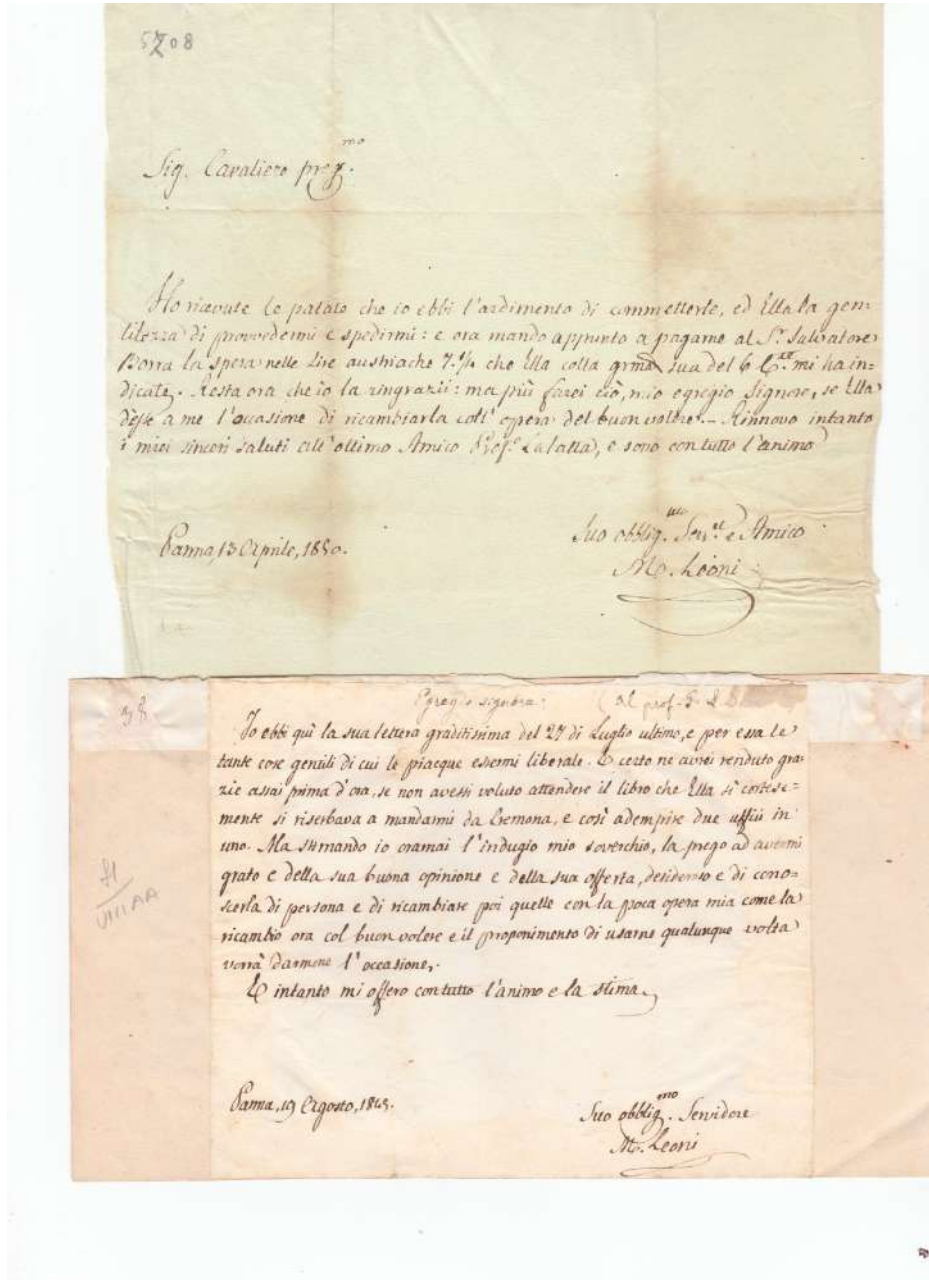 5708
Sig. Cavaliere preg.mo
Ho ricevute le patate che io ebbi l'ardimento di commetterle, ed Ella la gen-
tilezza di provvedermi e spedirmi: e ora mando appunto a pagarne al Sr. Salvatore
Borra la spesa nelle lire austriache 7. che Ella colla grma sua del 6 mi ha in-
dicate. Resta ora che io la ringrazii: ma più farei ciò, mio egregio Signore, se Ella
desse a me l'occasione di ricambiarla coll'opera del buon volere. - Rinnovo intanto
i miei sinceri saluti all'ottimo Amico Profe. Lalatta, e sono con tutto l'animo
Parma, 13 Aprile, 1850.
Suo obblig.mo Serv.re e Amico
M. Leoni
38
Egregio signore: (al prof.
Io ebbi quì la sua lettera graditissima del 27 di Luglio ultimo, e per essa le
tante cose gentili di cui le piacque essermi liberale. E certo ne avrei renduto gra-
zie assai prima d'ora, se non avessi voluto attendere il libro che Ella sì cortese=
mente si riserbava a mandarmi da Cremona, e così adempire due uffizii in
uno. Ma stimando io oramai l'indugio mio soverchio, la prego ad avermi
grato e della sua buona opinione e della sua offerta, desideroso e di cono-
scerla di persona e di ricambiare poi quelle con la poca opera mia come la
ricambio ora col buon volere e il proponimento di usarne qualunque volta
vorrà darmene l'occasione.
E intanto mi offero con tutto l'animo e la stima
Parma, 19 Agosto, 1845.
Suo obblig.mo Servidore
M. Leoni